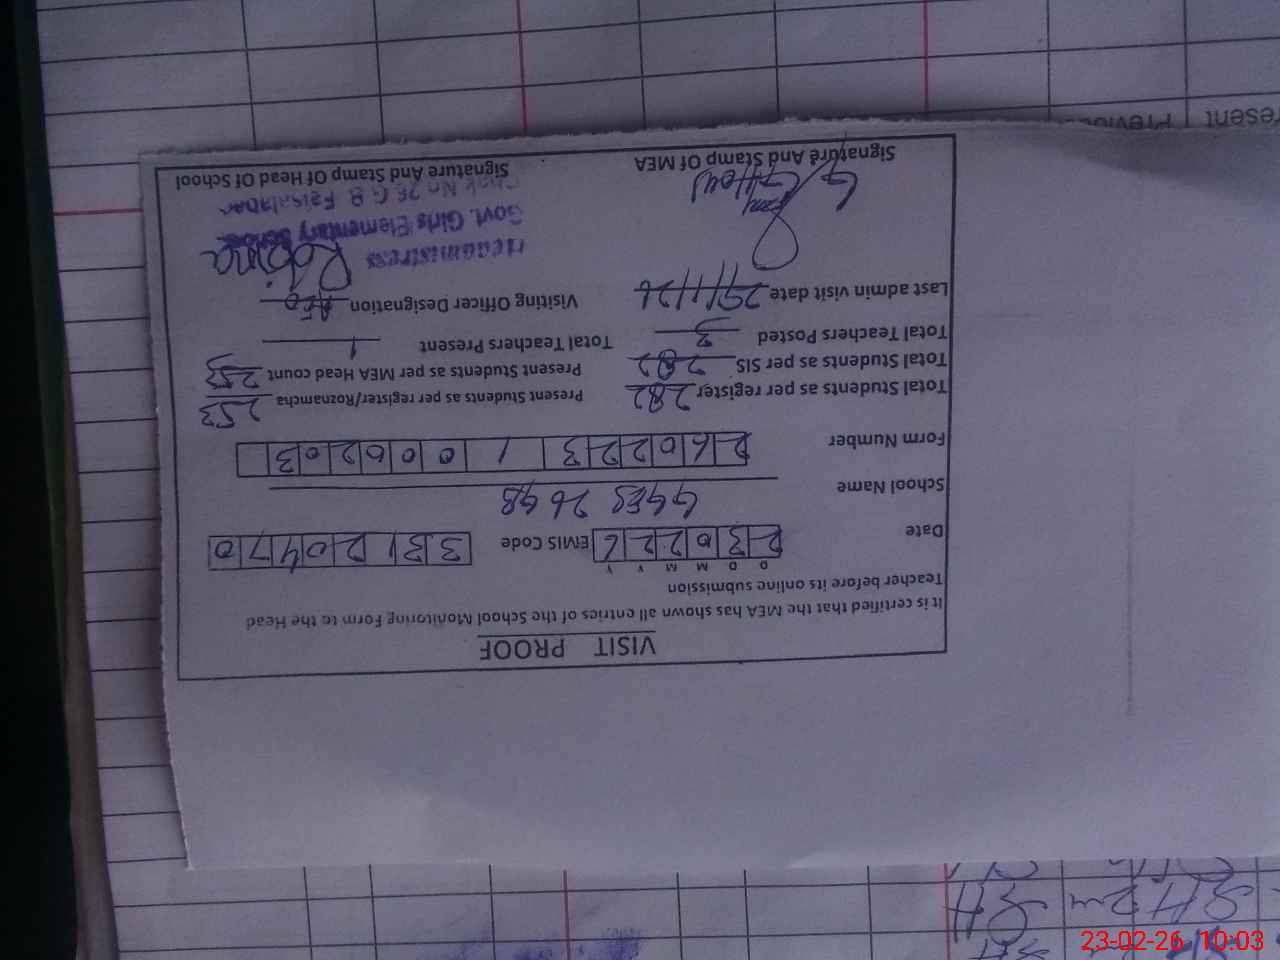 VISIT PROOF
It is certified that the MEA has shown all entries of the School Monitoring Form to the Head
Teacher before its online submission
D D M M Y Y
Date 230226 EMIS Code 33120470
School Name GGES 26 GB
Form Number 260223 1 000203
Total Students as per register 282 Present Students as per register/Roznamcha 253
Total Students as per SIS 282 Present Students as per MEA Head count 253
Total Teachers Posted 3 Total Teachers Present 1
Last admin visit date 29/1/26 Visiting Officer Designation AEO
Headmistress
Govt. Girls Elementary School
Chak No 26 G B Faisalabad
Signature And Stamp Of MEA Signature And Stamp Of Head Of School
23-02-26 10:03